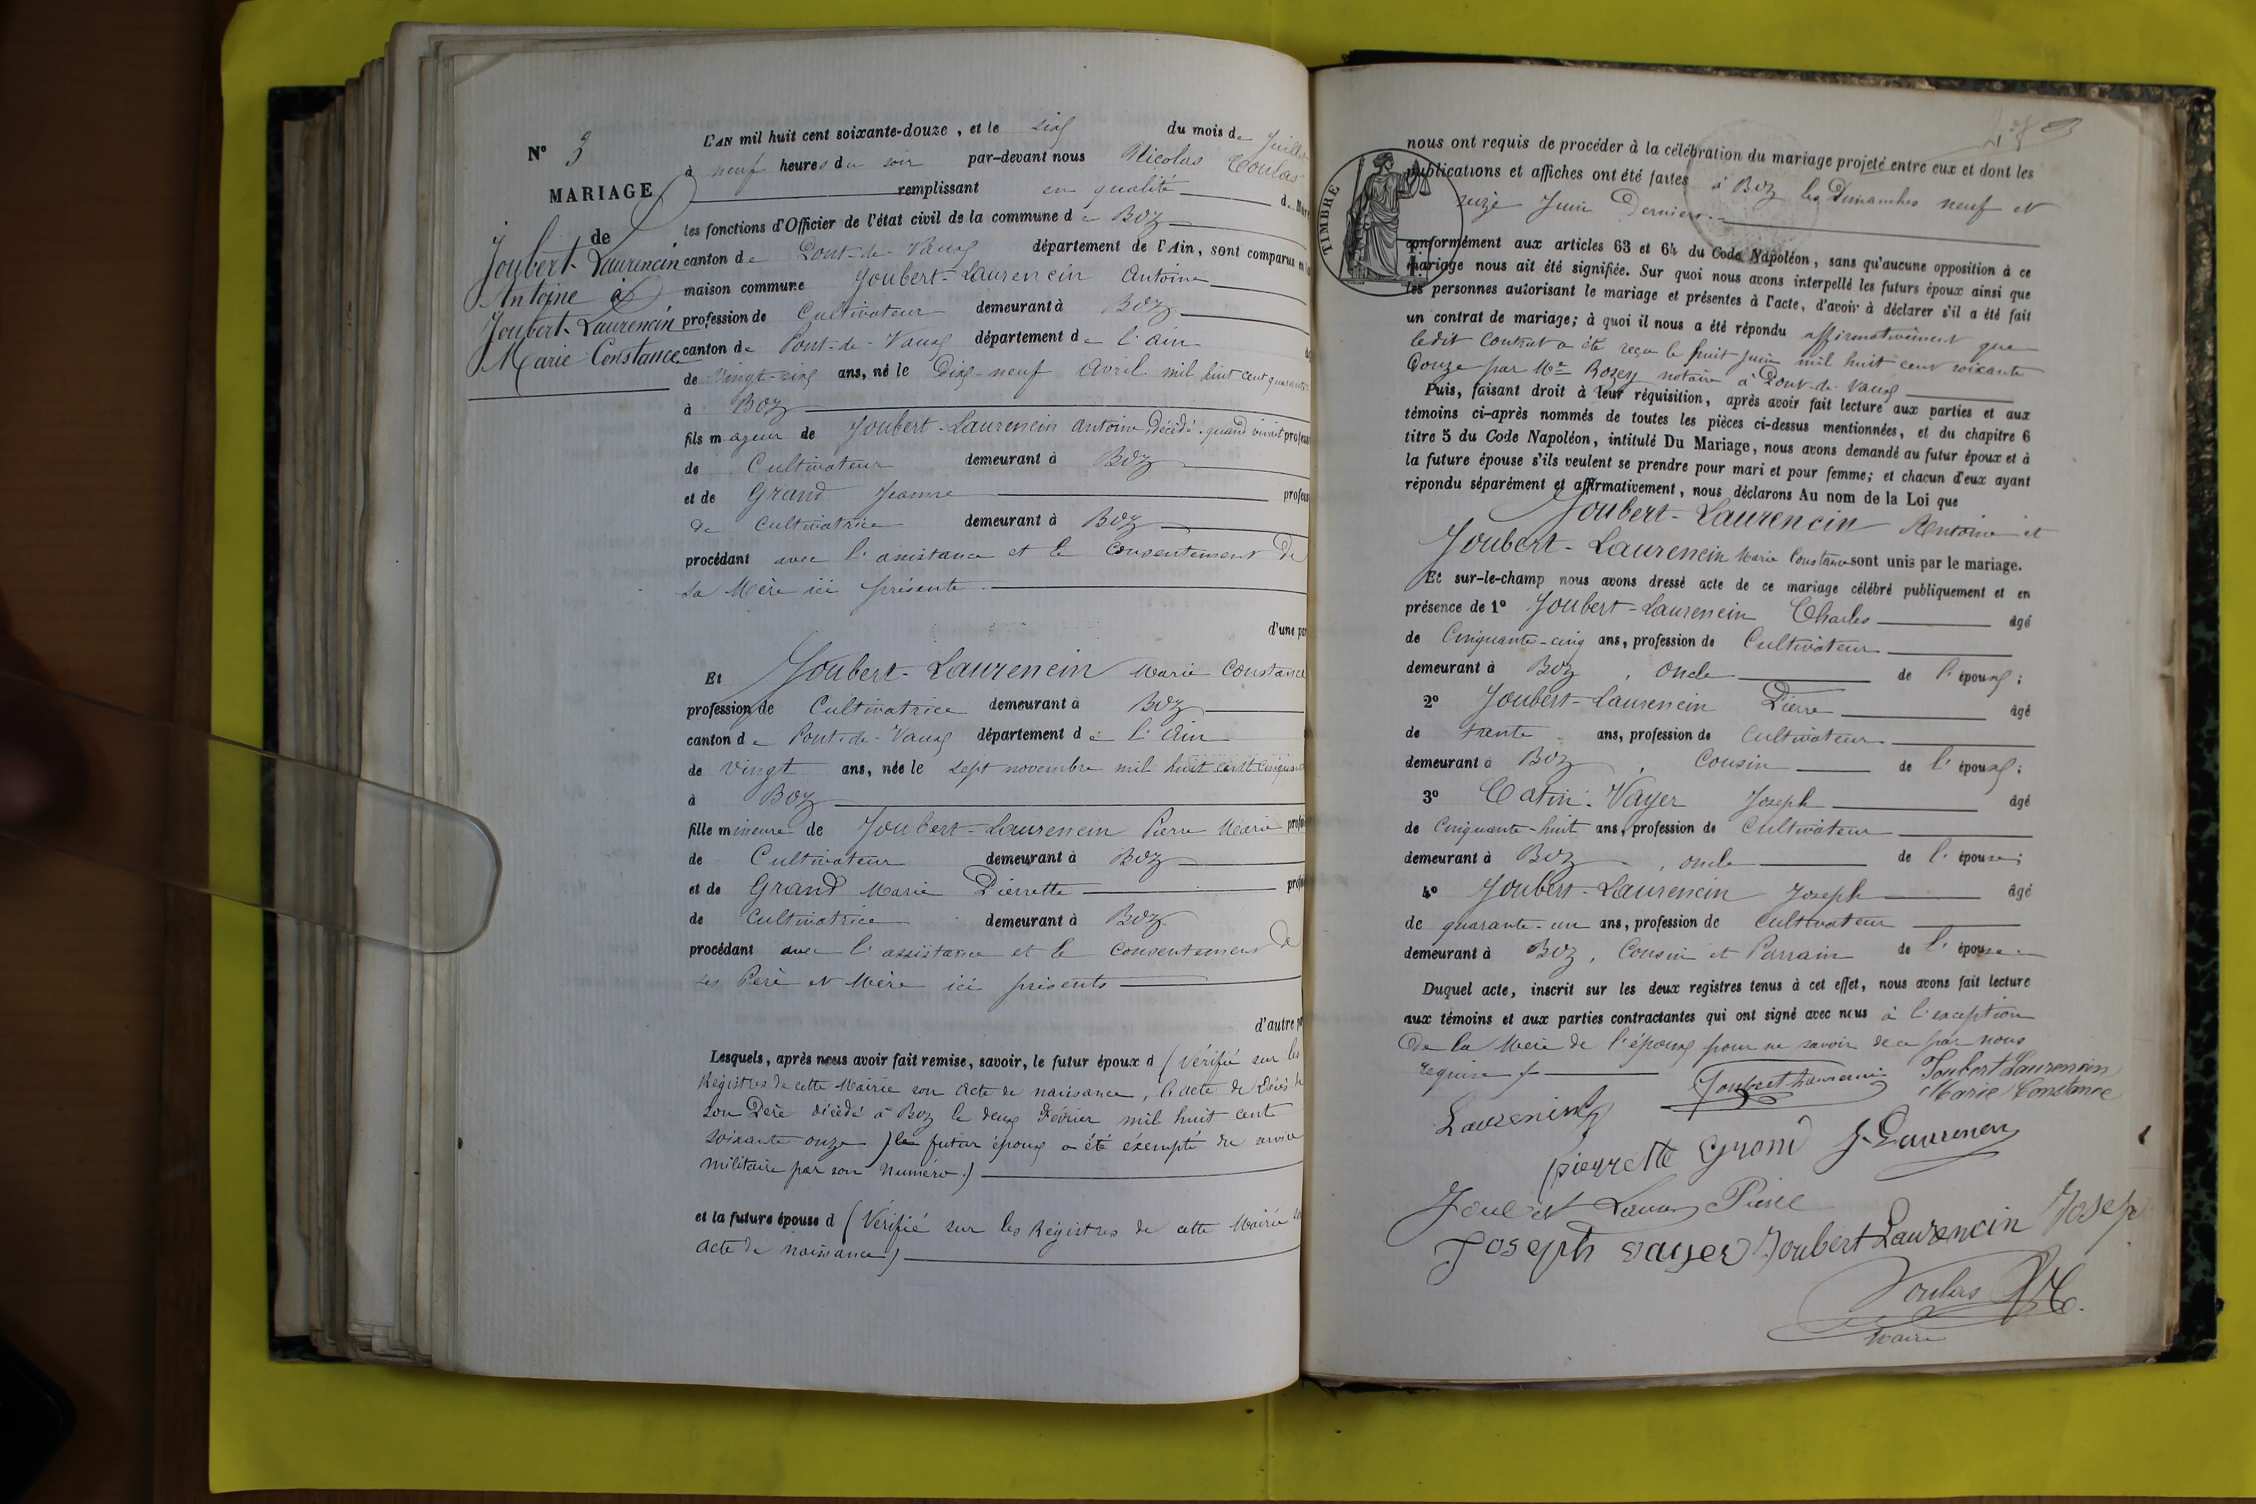 N° 3
MARIAGE
de
Joubert-Laurencin
Antoine à
Joubert-Laurencin
Marie Constance
L'AN mil huit cent soixante-douze, et le six du mois de Juillet
à neuf heures du soir par-devant nous Nicolas Coulas
remplissant en qualité de Maire
les fonctions d'Officier de l'état civil de la commune de Boz
canton de Pont-de-Vaux département de l'Ain, sont comparus en la
maison commune Joubert-Laurencin Antoine
profession de Cultivateur demeurant à Boz
canton de Pont-de-Vaux département de l'ain
de vingt-six ans, né le Dix-neuf Avril mil huit cent quarante
à Boz
fils majeur de Joubert-Laurencin Antoine Décédé quand vivait profess
de Cultivateur demeurant à Boz
et de Grand Jeanne profess
de Cultivatrice demeurant à Boz
procédant avec l'assistance et le consentement De
sa Mère ici présente
d'une par
Et Joubert-Laurencin Marie Constance
profession de Cultivatrice demeurant à Boz
canton de Pont-de-Vaux département de l'Ain
de vingt ans, née le sept novembre mil huit cent cinquante
à Boz
fille mineure de Joubert-Laurencin Pierre Marie profes
de Cultivateur demeurant à Boz
et de Grand Marie Pierrette profes
de Cultivatrice demeurant à Boz
procédant avec l'assistance et le consentement De
ses Père et Mère ici présents
d'autre pa
Lesquels, après nous avoir fait remise, savoir, le futur époux d (Vérifié sur les
Régistres de cette Mairie son acte de naissance, l'acte de Décès de
son Père décédé à Boz le deux Février mil huit cent
soixante onze) le futur époux a été éxempté du service
militaire par son numéro.)
et la future épouse d (Vérifié sur les Régistres de cette Mairie son
acte de naissance)
TIMBRE
nous ont requis de procéder à la célébration du mariage projeté entre eux et dont les
publications et affiches ont été faites à Boz les Dimanches neuf et
seize Juin Derniers
conformément aux articles 63 et 64 du Code Napoléon, sans qu'aucune opposition à ce
mariage nous ait été signifiée. Sur quoi nous avons interpellé les futurs époux ainsi que
les personnes autorisant le mariage et présentes à l'acte, d'avoir à déclarer s'il a été fait
un contrat de mariage; à quoi il nous a été répondu affirmativement que
ledit Contrat a été reçu le huit Juin mil huit cent soixante
Douze par Me Rozey notaire à Pont-de-Vaux
Puis, faisant droit à leur réquisition, après avoir fait lecture aux parties et aux
témoins ci-après nommés de toutes les pièces ci-dessus mentionnées, et du chapitre 6
titre 5 du Code Napoléon, intitulé Du Mariage, nous avons demandé au futur époux et à
la future épouse s'ils veulent se prendre pour mari et pour femme; et chacun d'eux ayant
répondu séparément et affirmativement, nous déclarons Au nom de la Loi que
Joubert-Laurencin Antoine et
Joubert-Laurencin Marie Constance sont unis par le mariage.
Et sur-le-champ nous avons dressé acte de ce mariage célébré publiquement et en
présence de 1° Joubert-Laurencin Charles âgé
de Cinquante-cinq ans, profession de Cultivateur
demeurant à Boz, oncle de l'époux;
2° Joubert-Laurencin Pierre âgé
de trente ans, profession de Cultivateur
demeurant à Boz, Cousin de l'époux;
3° Catin-Vayer Joseph âgé
de Cinquante-huit ans, profession de Cultivateur
demeurant à Boz, oncle de l'épouse;
4° Joubert-Laurencin Joseph âgé
de quarante-un ans, profession de Cultivateur
demeurant à Boz, Cousin et Parrain de l'épouse
Duquel acte, inscrit sur les deux registres tenus à cet effet, nous avons fait lecture
aux témoins et aux parties contractantes qui ont signé avec nous à l'exception
De la Mère de l'époux pour ne savoir de ce par nous
requise
Joubert Laurencin
Joubert Laurencin
Marie Constance
Laurencin
pierrette Grand J. Laurencin
Joubert Lauren Pierre
Joseph vayer Joubert Laurencin Josep
Coulas
Maire